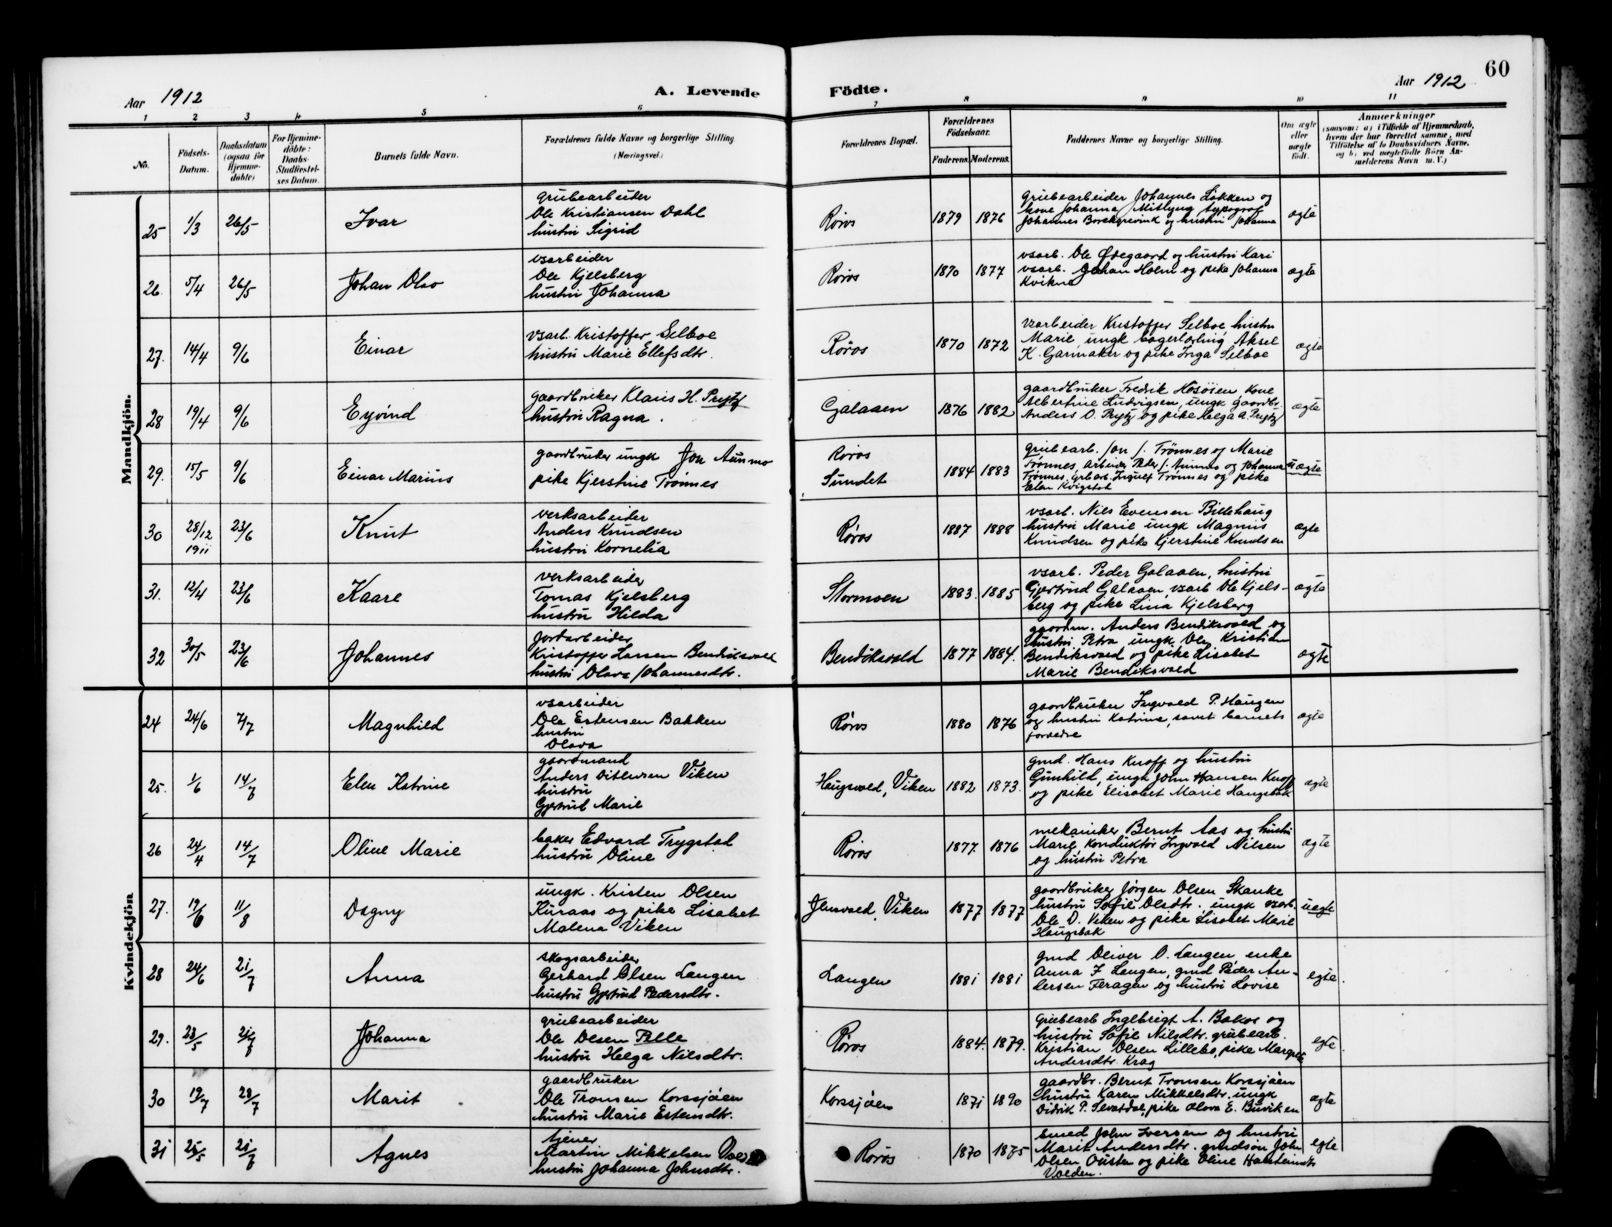 60
Aar 1912
A. Levende
Födte.
Aar 1912
1 2 3 4 5 6 7 8 9 10 11
No.
Födsels-
Datum.
Daabsdatum
(ogsaa for
Hjemme-
döbte)
For Hjemme-
döbte:
Daabs-
Stadfæstel-
ses Datum.
Barnets fulde Navn.
Forældrenes fulde Navne og borgerlige Stilling
(Næringsvei.)
Forældrenes Bopæl.
Forældrenes
Födselsaar.
Faderens. Moderens.
Faddernes Navne og borgerlige Stilling.
Om ægte
eller
uægte
födt.
Anmærkninger
Mandkjön.
25 1/3 26/5 Ivar
grubearbeider
Ole Kristiansen Dahl
hustru Sigrid
Røros 1879 1876
grubearbeider Johannes Løkken og
kone Johanna Mitlyng typograf
Johannes Borchgrevink og hustru Johanna
ægte
26. 5/4 26/5 Johan Olso
vsarbeider
Ole Kjelsberg
hustru Johanna
Røros 1870 1877
vsarb. Ole Ødegaard og hustru Kari
vsarb. Johan Holm og pike Johanna
Kvikne
ægte
27. 14/4 9/6 Einar
vsarb. Kristoffer Selboe
hustru Marie Ellefsdtr.
Røros 1870 1872
vsarbeider Kristoffer Selboe, hustru
Marie, ungk bagerlærling Aksel
K. Garmaker og pike Inga Selboe
ægte
28 19/4 9/6 Eyvind
gaardbruker Klaus H. Prytz
hustru Ragna.
Galaaen 1876 1882
gaardbruker Fredrik Hosøien kone
Albertine Ludvigsen, ungk gaardbr.
Anders O. Prytz og pike Helga A. Prytz
ægte
29. 15/5 9/6 Einar Marius
gaardbruker ungk Jon Aunmo
pike Kjerstine Trønnes
Røros
Sundet
1884 1883
grubearb. Jon J. Trønnes og Marie
Trønnes, Arbeider Peder J. Aunmo og Johanna
Trønnes, grbarb. Ingulf Trønnes og pike
Elen Kvigstak
uægte
30 28/12 1911 23/6 Knut
verksarbeider
Anders Knudsen
hustru Kornelia
Røros 1887 1888
vsarb. Nils Evensen Billehaug
hustru Marie ungk Magnus
Knudsen og pike Kjerstine Knudsen
ægte
31. 12/4 23/6 Kaare
verksarbeider
Tomas Kjelsberg
hustru Hilda
Stormoen 1883. 1885
vsarb. Peder Galaaen, hustru
Gjertrud Galaaen, vsarb Ole Kjels-
berg og pike Lina Kjelsberg
ægte
32 30/5 23/6 Johannes
jordarbeider
Kristoffer Larsen Bendiksvold
hustru Olava Johannesdtr.
Bendiksvold 1877 1884.
gaardm. Anders Bendiksvold og
hustru Petra ungk Ole Kristian
Bendiksvold og pike Lisabet
Marie Bendiksvold
ægte
Kvindekjön
24 24/6 7/7 Magnhild
vsarbeider
Ole Estensen Bakken
hustru
Olava
Røros 1880 1876
gaardbruker Ingvald P. Haugen
og hustru Katrine, samt barnets
forældre
ægte
25. 1/6 14/7 Elen Katrine
gaardmand
Anders Ditlevsen Viken
hustru
Gjertrud Marie
Haugsvold, Viken 1882 1873.
gmd. Hans Knoff og hustru
Gunhild, ungk John Hansen Knoff
og pike Elisabet Marie Haugsbak
ægte
26 24/4 14/7 Oline Marie
baker Edvard Trygstad
hustru Oline
Røros 1877 1876
mekaniker Bernt Aas og hustru
Marie, konduktør Ingvald Nilsen
og hustru Petra
ægte
27. 19/6 11/8 Dagny
ungk. Kristen Olsen
Kuraas og pike Lisabet
Malena Viken
Jensvold, Viken 1877 1877
gaardbruker Jørgen Olsen Skanke
hustru Sofie Olsdtr. ungk vsarb.
Ole D. Viken og pike Lisabet Marie
Haugsbak
uægte
28 24/6 21/7 Anna
skogsarbeider
Gerhard Olsen Langen
hustru Gjertrud Pedersdtr.
Langen 1881 1881
gmd Oliver O. Langen, enke
Anna F Langen, gmd Peder An-
dersen Feragen og hustru Lovise
egte
29. 23/5 21/7 Johanna
grubearbeider
Ole Olsen Palle
hustru Helga Nilsdtr.
Røros 1884. 1879.
grubearb Ingebrigt A. Bakos og
hustru Sofie Nilsdtr. grubearb.
Kristian Olsen Lillebo, pike Margrete
Andersdtr. Krag
egte
30 19/7 28/7 Marit
gaardbruker
Ole Tronsen Korssjøen
hustru Marie Estensdtr.
Korssjøen 1871 1890
gaardbr. Bernt Tronsen Korssjøen
hustru Karen Mikkelsdtr. ungk
Didrik P. Sevatdal, pike Olava E. Burviken
ægte
31 25/5 21/7 Agnes
tjener
Martin Mikkelsen
hustru Johanna Johnsdtr.
Røros 1870 1875
smed John Iversen og hustru
Marit Andersdtr. gmdsøn John
Olsen Ousten og pike Oline
Volden.
egte